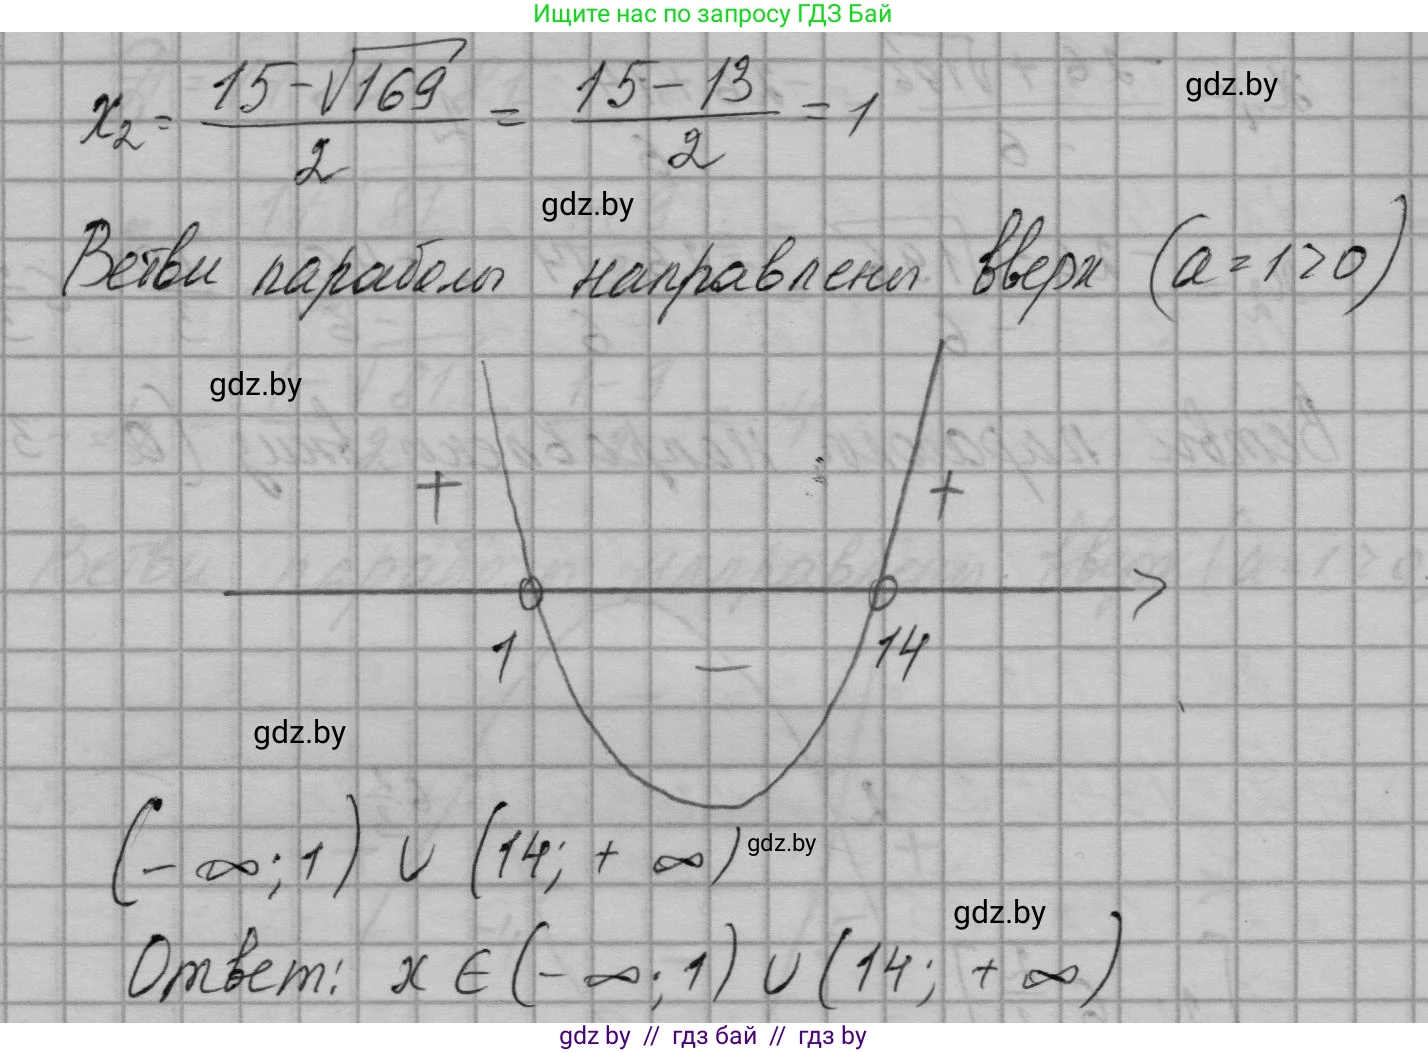 Ищите нас по запросу ГДЗ Бай
x₂ = (15 - √169)/2 = (15 - 13)/2 = 1
gdz.by
gdz.by
Ветви параболы направлены вверх (a = 1 > 0)
gdz.by
+ +
1 − 14
gdz.by
(- ∞; 1) ∪ (14; + ∞)
gdz.by
gdz.by
Ответ: x ∈ (- ∞; 1) ∪ (14; + ∞)
gdz.by // гдз бай // гдз by